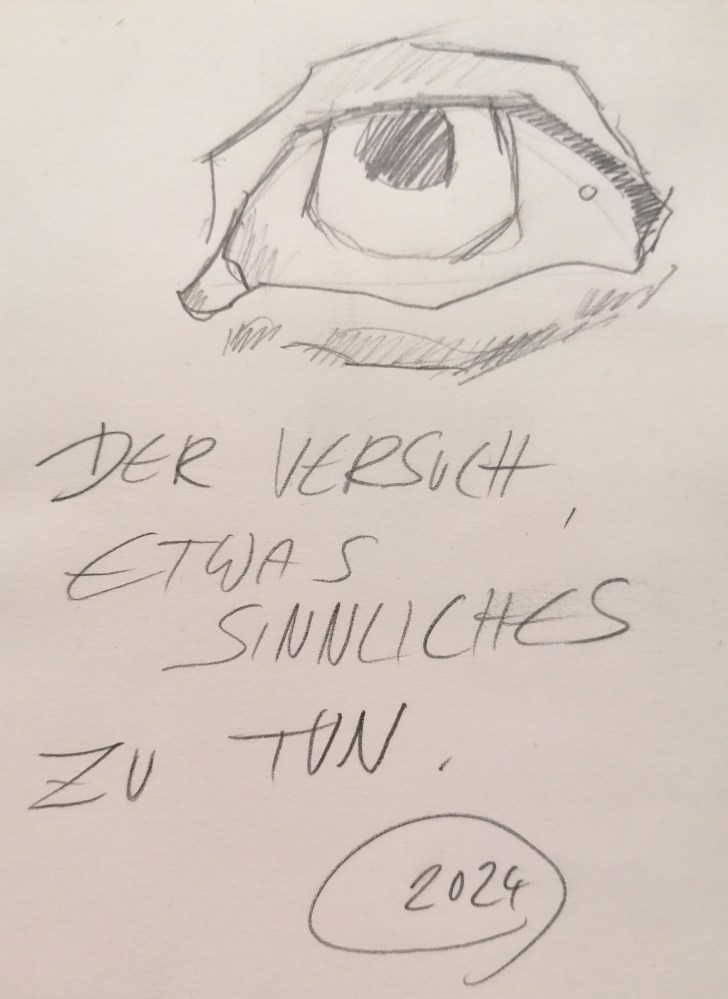 DER VERSUCH,
ETWAS
SINNLICHES
ZU TUN.
2024